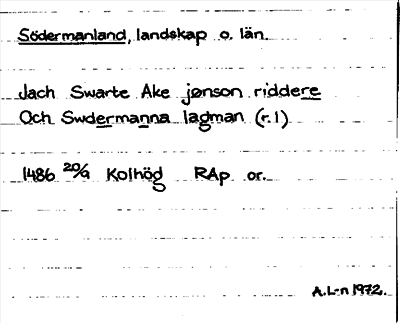 Södermanland, landskap o. län.
Jach Swarte Åke jønson riddere
Och Swdermanna lagman (r. 1)
1486 20/9 Kolhög RAp or.
A.L-n 1972.